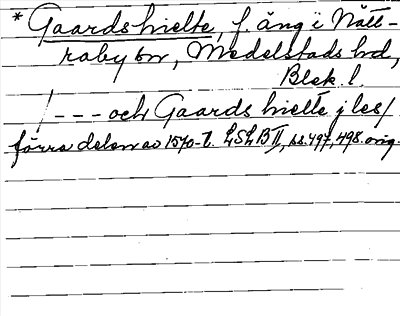 * Gaardshielte, f. äng i Nätt-
raby sn, Medelstads hd,
Blek. l.
/--- och Gaards hielte j les/
förra delen av 1570-t. LSLB II, ss. 497, 498. orig.